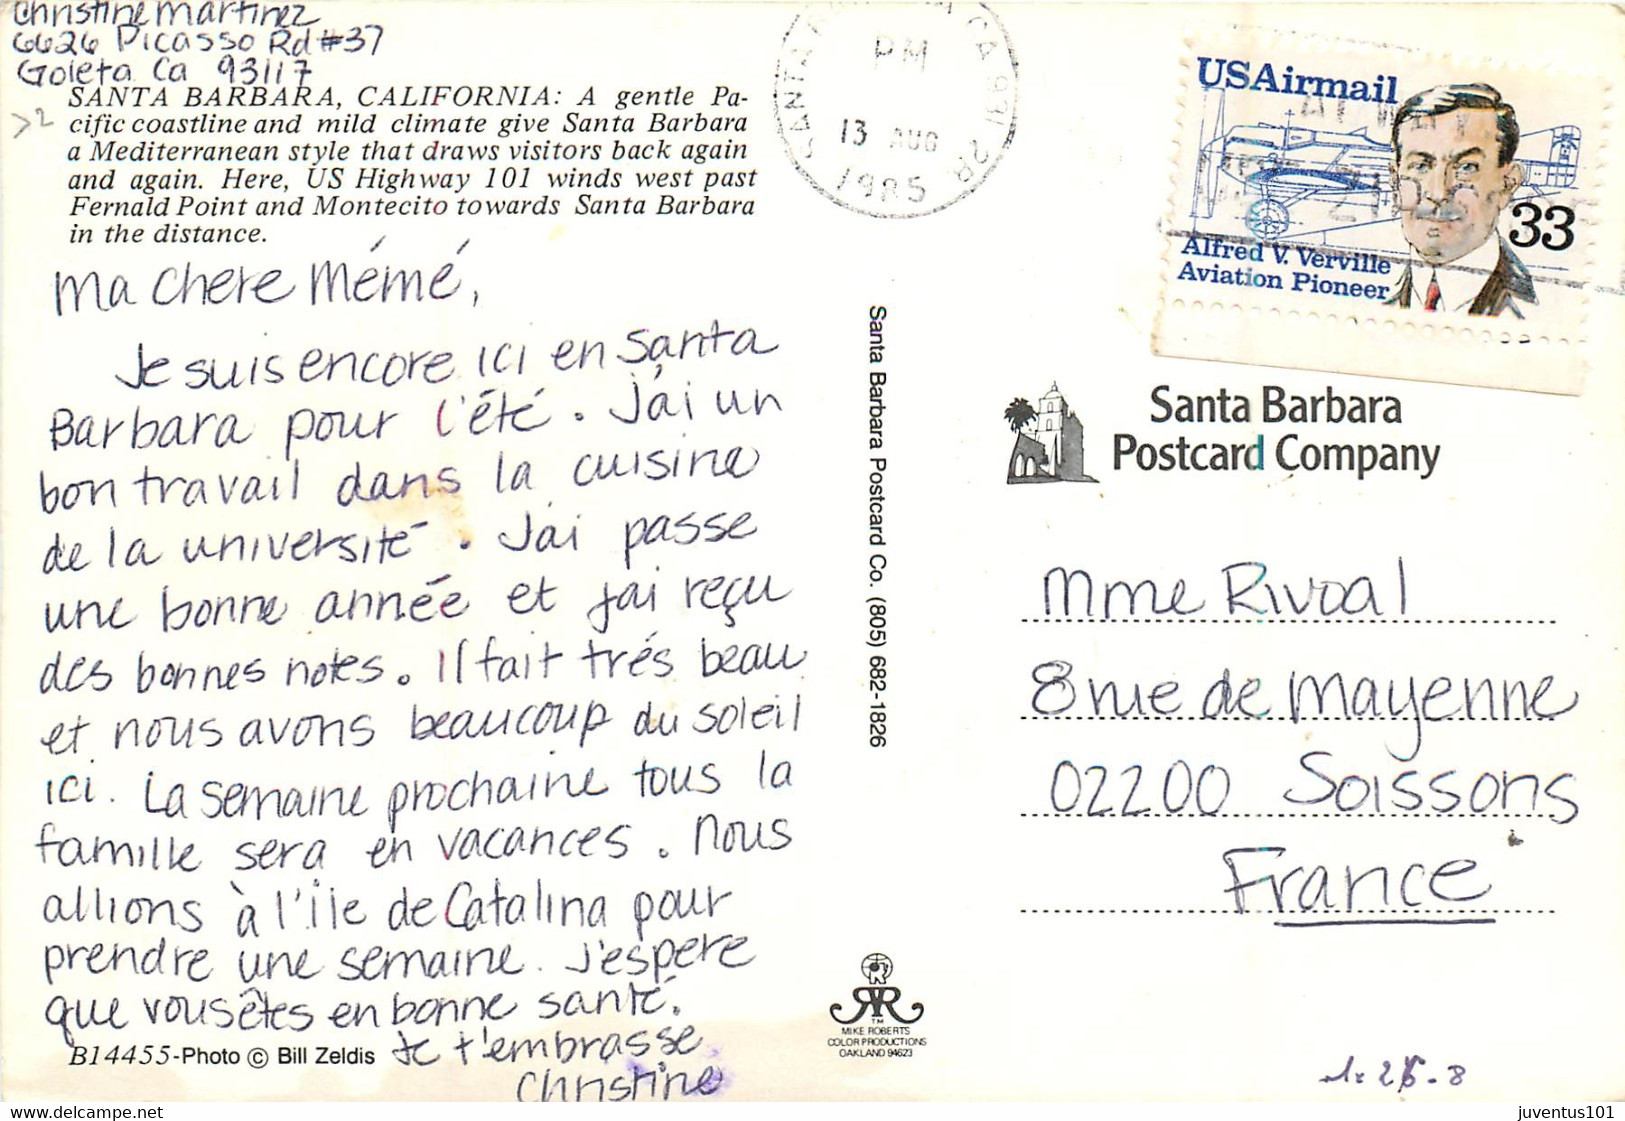 Christine Martinez
6626 Picasso Rd #37
Goleta Ca 93117
>2
SANTA BARBARA, CALIFORNIA: A gentle Pa-
cific coastline and mild climate give Santa Barbara
a Mediterranean style that draws visitors back again
and again. Here, US Highway 101 winds west past
Fernald Point and Montecito towards Santa Barbara
in the distance.
Ma chere Mémé,
Je suis encore ici en Santa
Barbara pour l'été. J'ai un
bon travail dans la cuisine
de la université. J'ai passe
une bonne année et j'ai reçu
des bonnes notes. Il fait trés beau
et nous avons beaucoup du soleil
ici. La semaine prochaine tous la
famille sera en vacances. Nous
allions à l'île de Catalina pour
prendre une semaine. J'espere
que vous êtes en bonne santé.
Je t'embrasse
Christine
B14455-Photo © Bill Zeldis
Santa Barbara Postcard Co. (805) 682-1826
SANTA CA 931
PM
13 AUG
1985
USAirmail
33
Alfred V. Verville
Aviation Pioneer
Santa Barbara
Postcard Company
Mme Rivoal
8 rue de Mayenne
02200 Soissons
France
TM
MIKE ROBERTS
COLOR PRODUCTIONS
OAKLAND 94623
juventus101